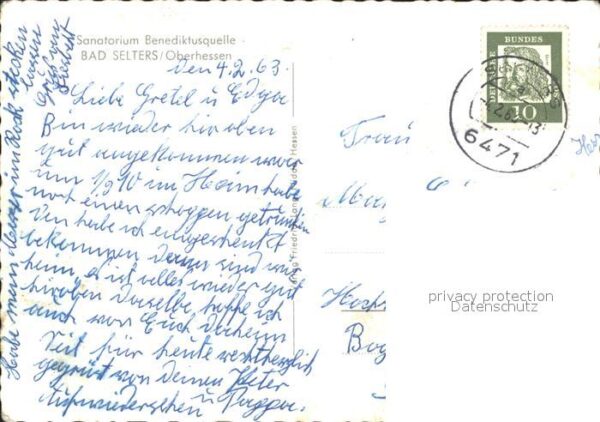 Sanatorium Benediktusquelle
BAD SELTERS/Oberhessen
den 4.2.63.
Liebe Gretel u Edgar
Bin wieder hir oben
gut angekommen war
um 1/2 10 im Heim habe
noch einen schoppen getrunken
Den habe ich eingeschenkt
bekommen dann sind wir
heim, es ist alles wieder gut
hiroben Dasselbe hoffe ich
auch von Euch daheim
Seit für heute recht herzlich
gegrüst von Deinen Vater
Aufwiedersehen u Pappa.
Habe mein Messer im Rock stecken
lassen
Gruß
Verlag Friedrich Hessen
Frau
DEUTSCHE BUNDESPOST
10
6471
privacy protection
Datenschutz